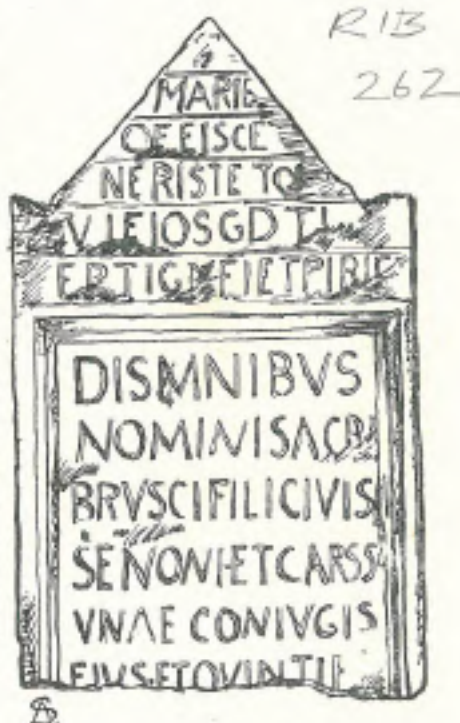 RIB
262
MARIE
OFEISCE
NERISTE TO
VIFIOSGDTI
DISMNIBVS
NOMINISACRI
BRVSCIFILICIVIS
SENONI·ETCARSS
VNAE CONIVGIS
EIVSETQVINTIE